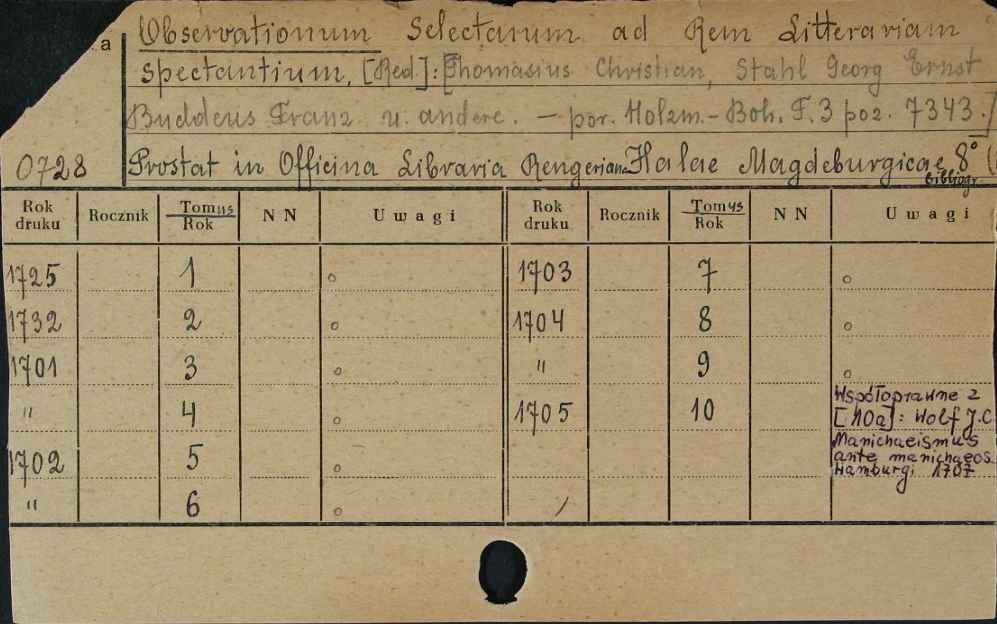 a
Observationum Selectarum ad Rem Litterariam
spectantium, [Red.]: Thomasius Christian, Stahl Georg Ernst
Buddeus Franz u. andere. — por. Holzm.-Boh. F. 3 poz. 7343.
0728 Prostat in Officina Libraria Rengeriana Halae Magdeburgicae 8°
bibliogr.
Rok druku Rocznik Tomus/Rok NN Uwagi Rok druku Rocznik Tomus/Rok NN Uwagi
1725 1 o 1703 7 o
1732 2 o 1704 8 o
1701 3 o " 9 o
" 4 o 1705 10 Współoprawne z
[10a]: Wolf J.C.
Manichaeismus
1702 5 o ante manichaeos.
Hamburgi 1707
" 6 o